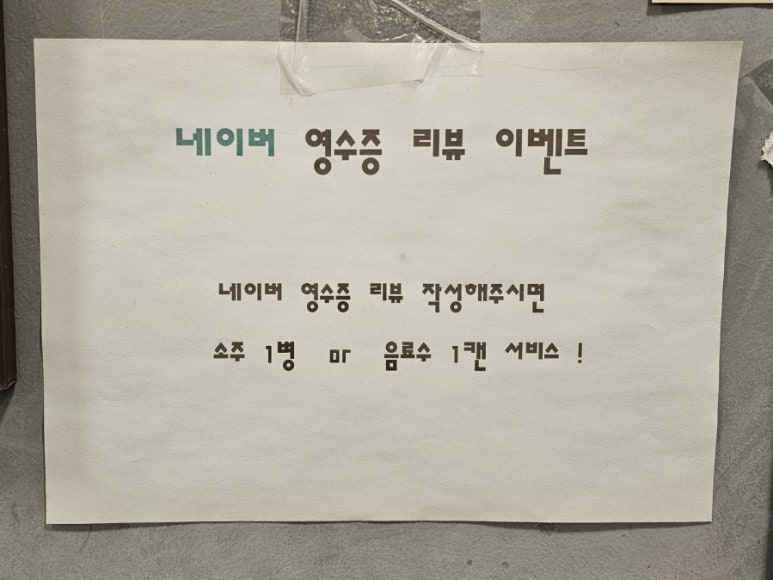 네이버 영수증 리뷰 이벤트
네이버 영수증 리뷰 작성해주시면
소주 1병 or 음료수 1캔 서비스 !